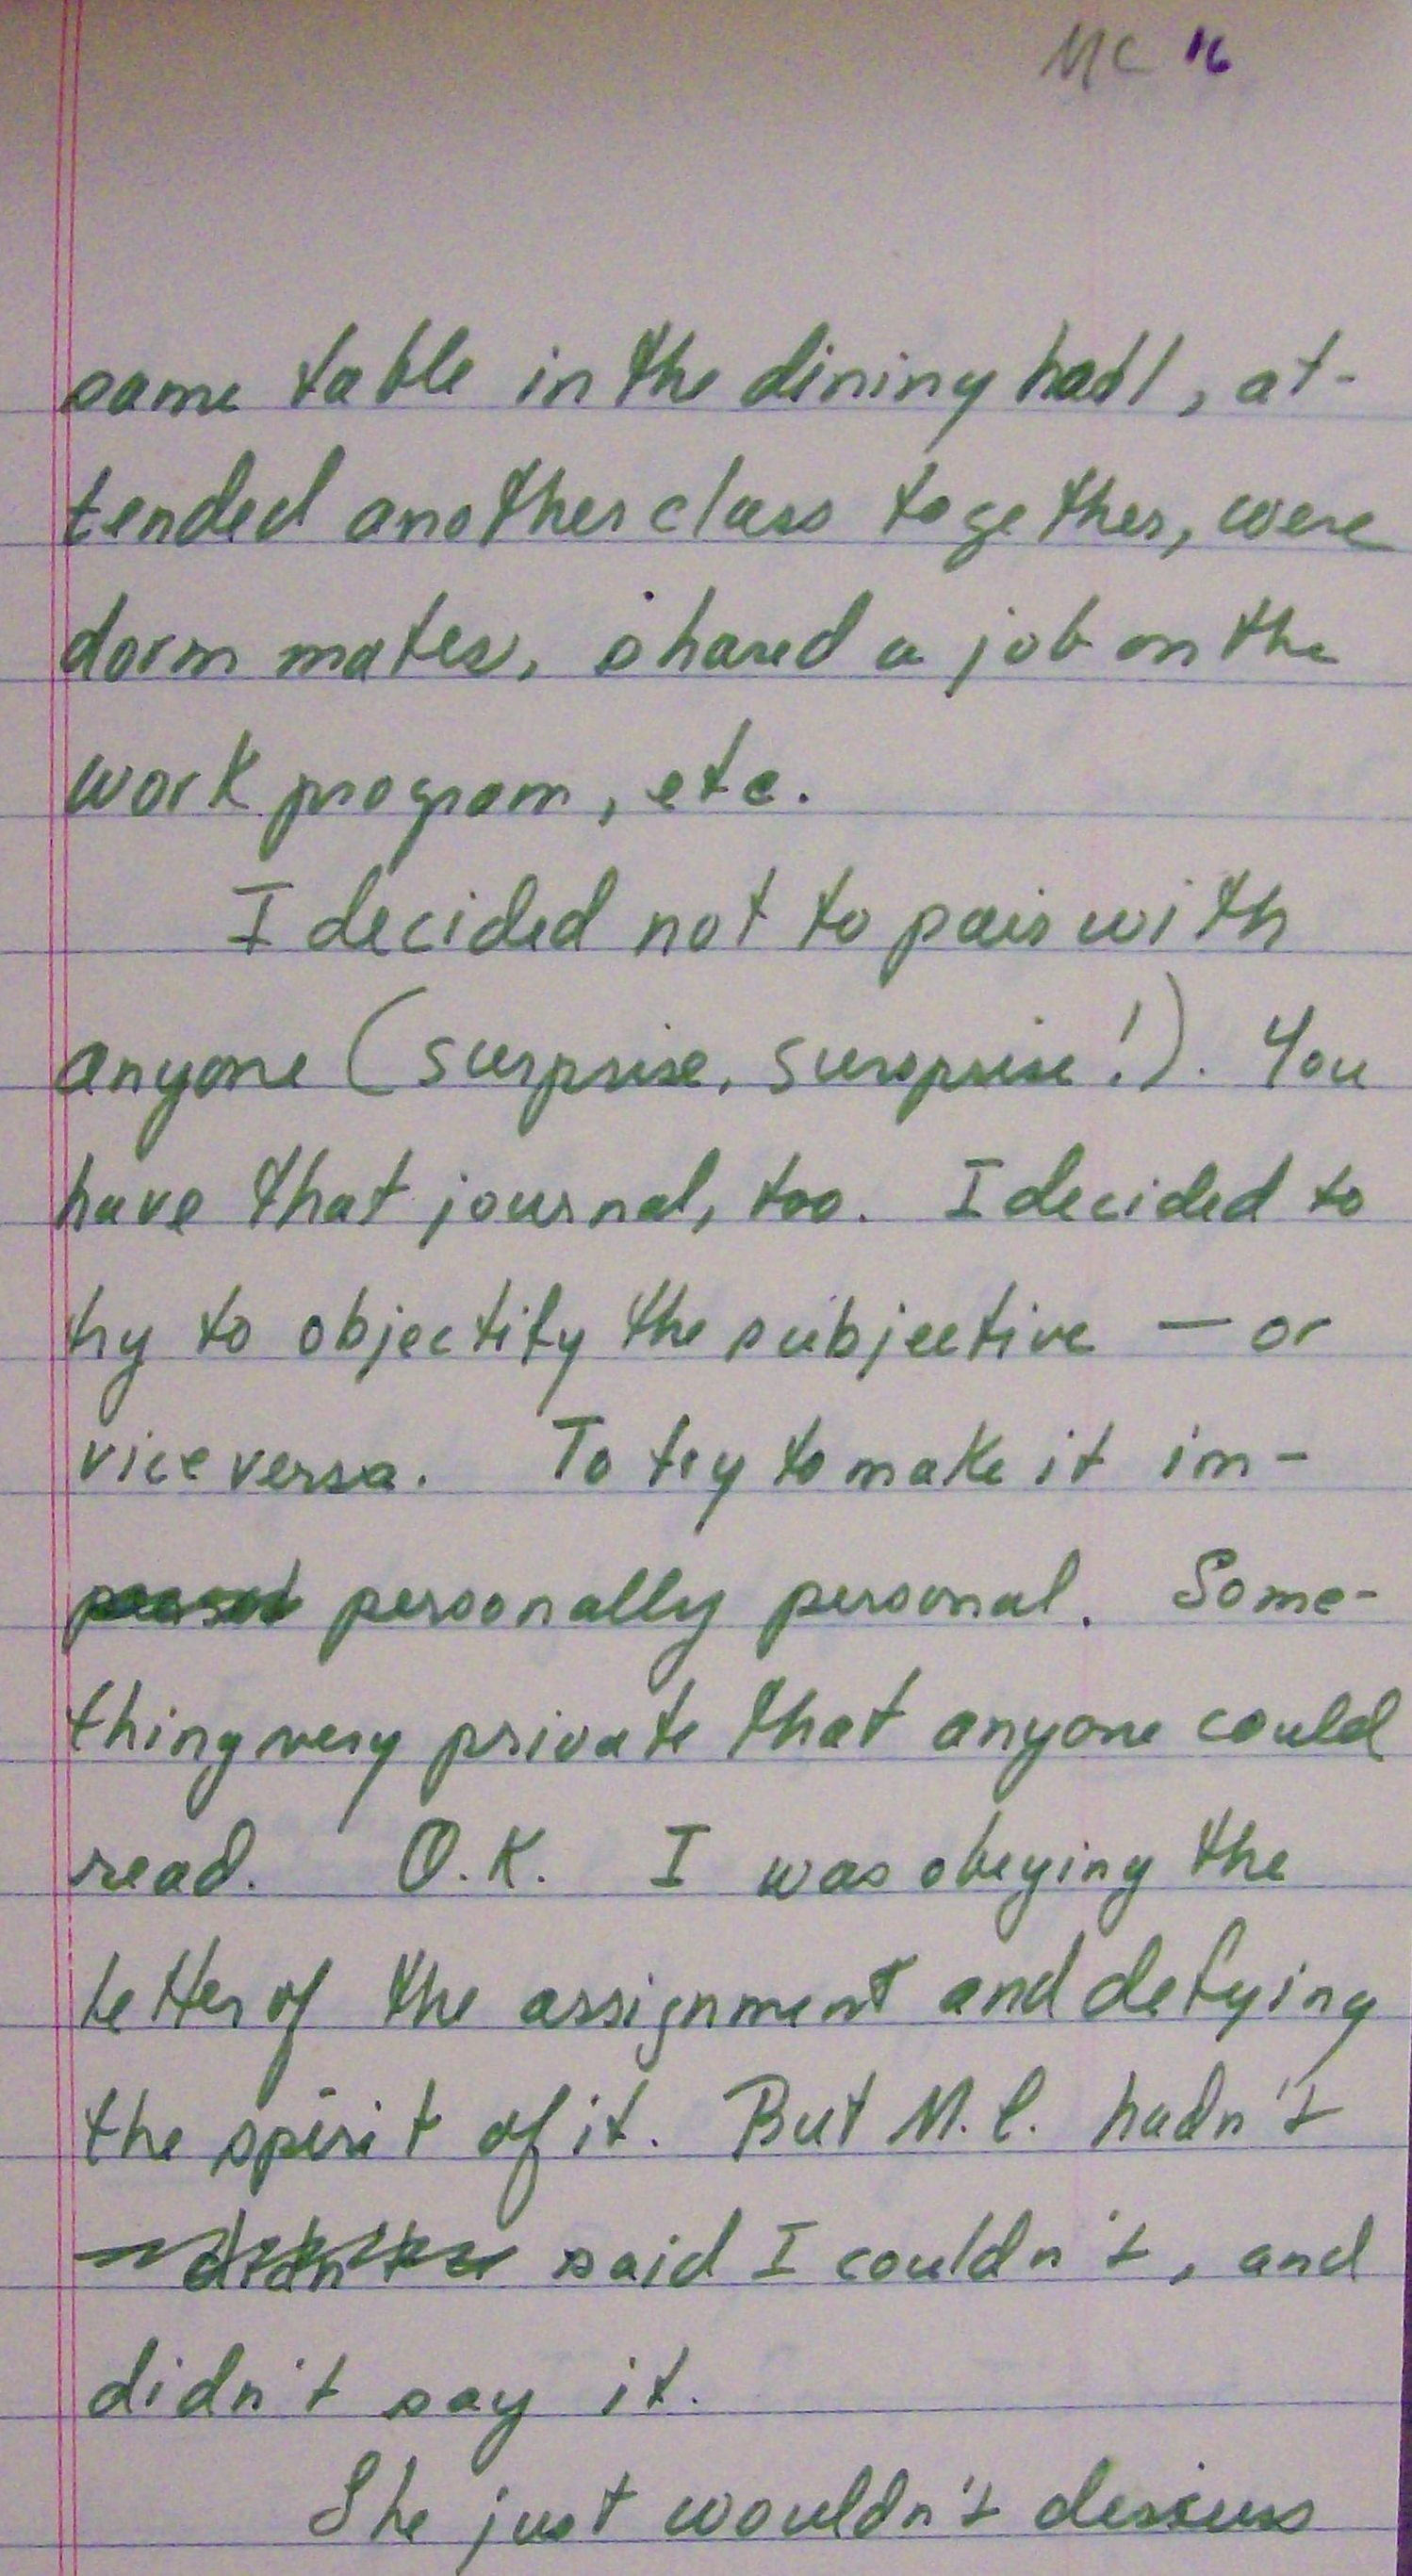 MC 16
same table in the dining hall, at-
tended another class together, were
dorm mates, shared a job on the
work program, etc.
I decided not to pair with
anyone (surprise, surprise!). You
have that journal, too. I decided to
try to objectify the subjective — or
vice versa. To try to make it im-
personally personal. Some-
thing very private that anyone could
read. O.K. I was obeying the
letter of the assignment and defying
the spirit of it. But M.C. hadn't
said I couldn't, and
didn't say it.
She just wouldn't discuss